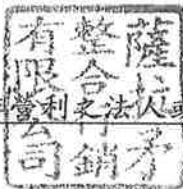 薩
整合行銷
有限公司
營利之法人或